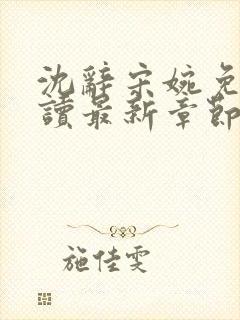 沈辭宋婉免
讀最新章節
施佳雯